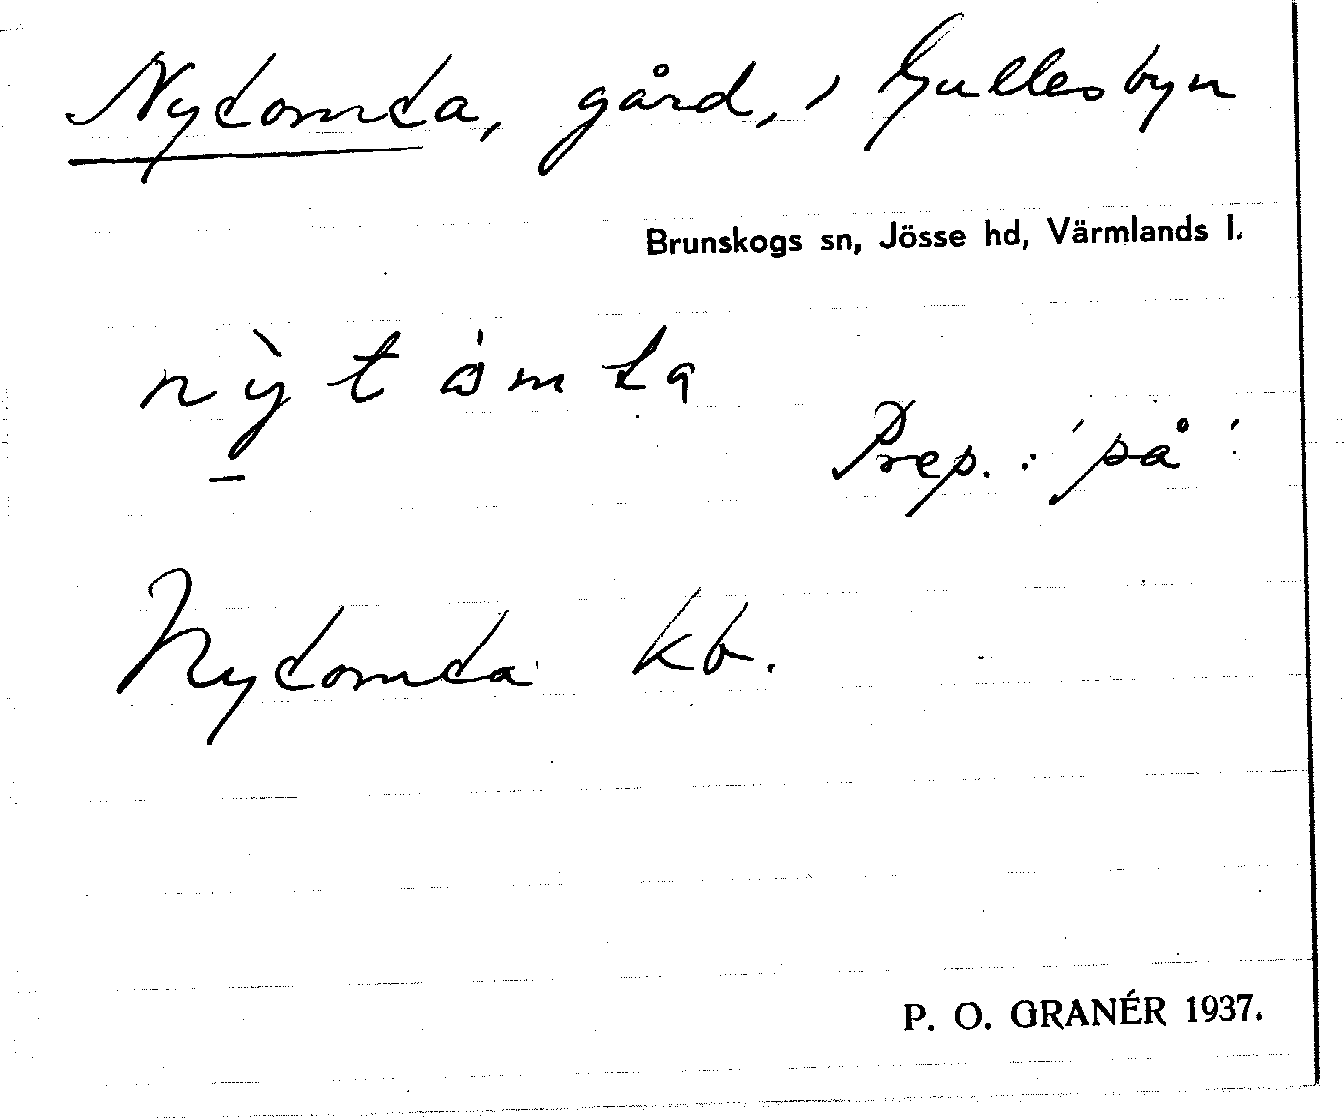 Nytomta, gård, i Gullesbyn
Brunskogs sn, Jösse hd, Värmlands l.
Prep.: 'på'
Nytomta kb.
P. O. GRANÉR 1937.